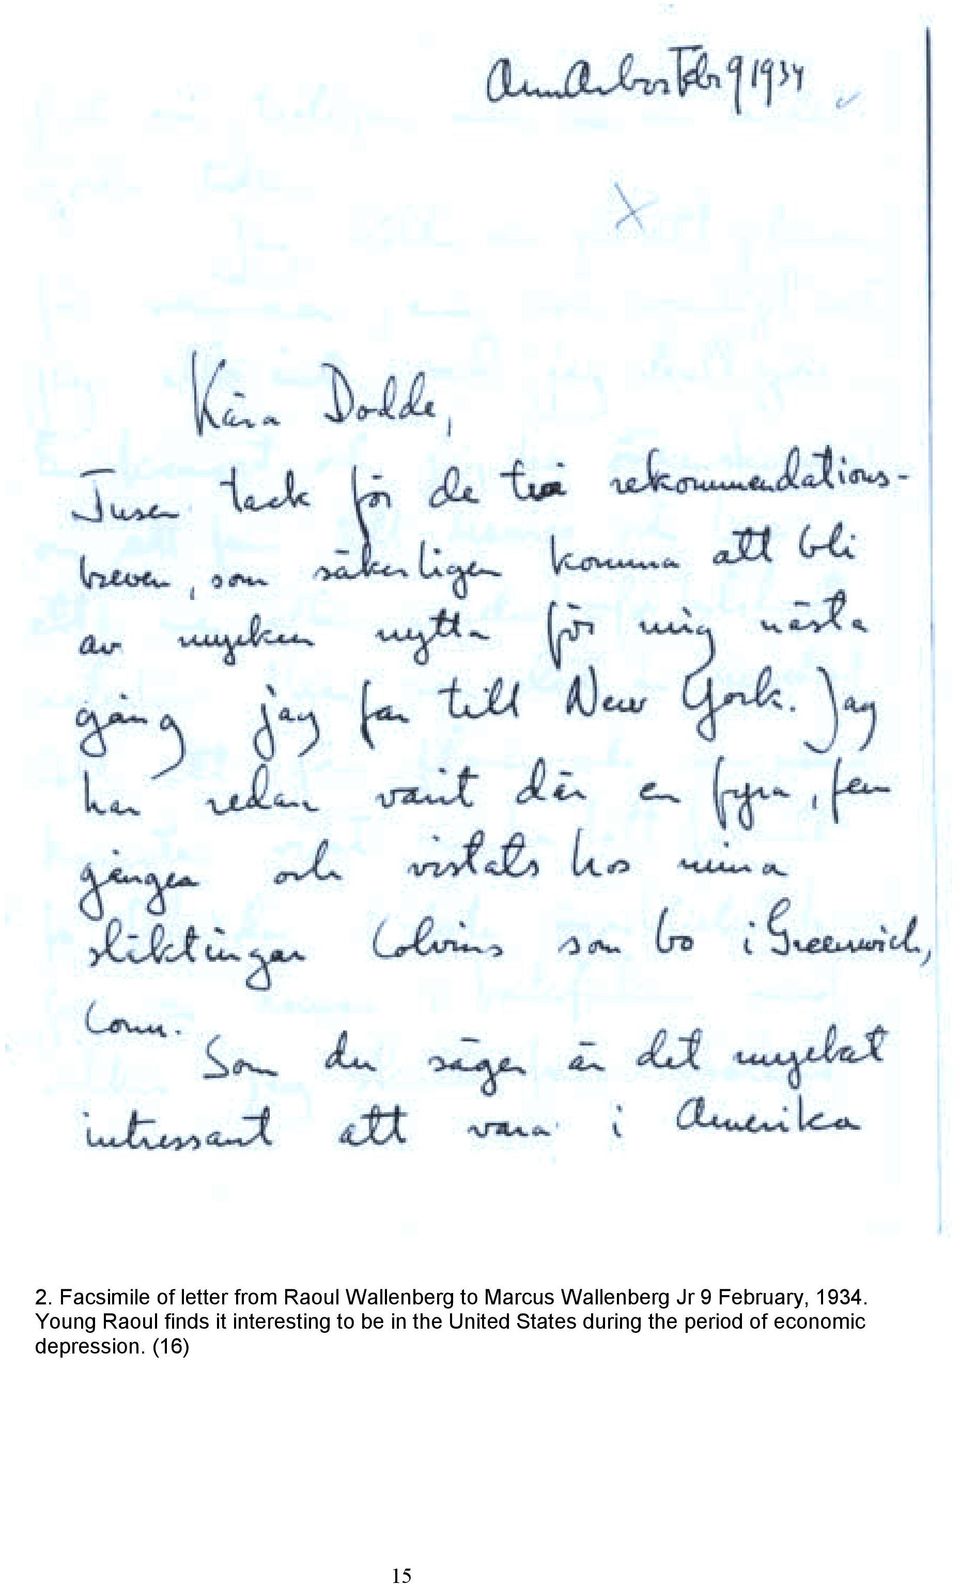 Ann Arbor Febr 9 1934
Kära Dodde,
Tusen tack för de två rekommendations-
breven, som säkerligen komma att bli
av mycken nytta för mig nästa
gång jag far till New York. Jag
har redan varit där en fyra, fem
gånger och vistats hos mina
släktingar Colvins som bo i Greenwich,
Conn.
Som du säger är det mycket
intressant att vara i Amerika
2. Facsimile of letter from Raoul Wallenberg to Marcus Wallenberg Jr 9 February, 1934.
Young Raoul finds it interesting to be in the United States during the period of economic
depression. (16)
15